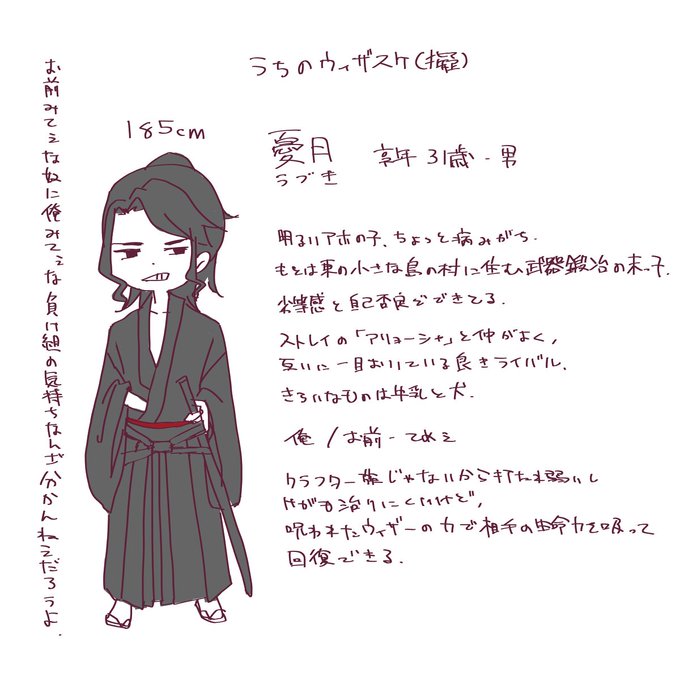 うちのウィザスケ(擬)
185cm
憂月 享年31歳・男
うづき
明るいアホの子、ちょっと病みがち.
もとは東の小さな島の村に住む武器鍛冶の末っ子.
劣等感と自己否定でできてる.
ストレイの「アリョーシャ」と仲がよく,
互いに一目おいている良きライバル.
きらいなものは牛乳と犬.
俺/お前・てめえ
クラフター姫じゃないから打たれ弱いし
けがも治りにくいけど,
呪われたウィザーの力で相手の生命力を吸って
回復できる.
お前みてえな奴に俺みてえな負け組の気持ちなんざ分かんねえだろうよ.